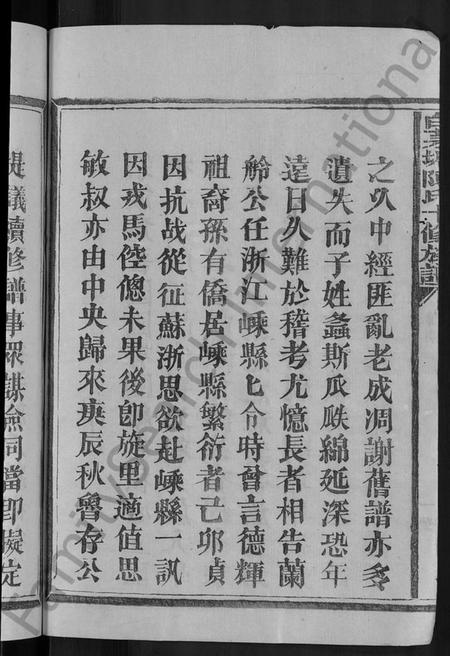 之久中經匪亂老成凋謝舊譜亦多
遺失而子姓螽斯瓜瓞綿延深恐年
遠日久難於稽考尤憶長者相告蘭
舲公任浙江嵊縣匕令時曾言德輝
祖裔孫有僑居嵊縣繁衍者己卯貞
因抗战從征蘇浙思欲赴嵊縣一訊
因戎馬倥傯未果後卽旋里適值思
敏叔亦由中央歸來庚辰秋譽存公
提議續修譜事眾謀僉同當卽擬定
陳氏 修族譜
FamilySearch International